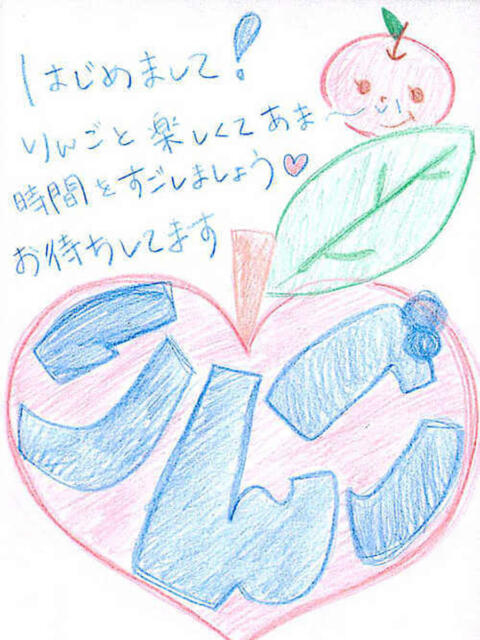 はじめまして！
りんごと楽しくてあま〜い
時間をすごしましょう♥
お待ちしてます
りんご